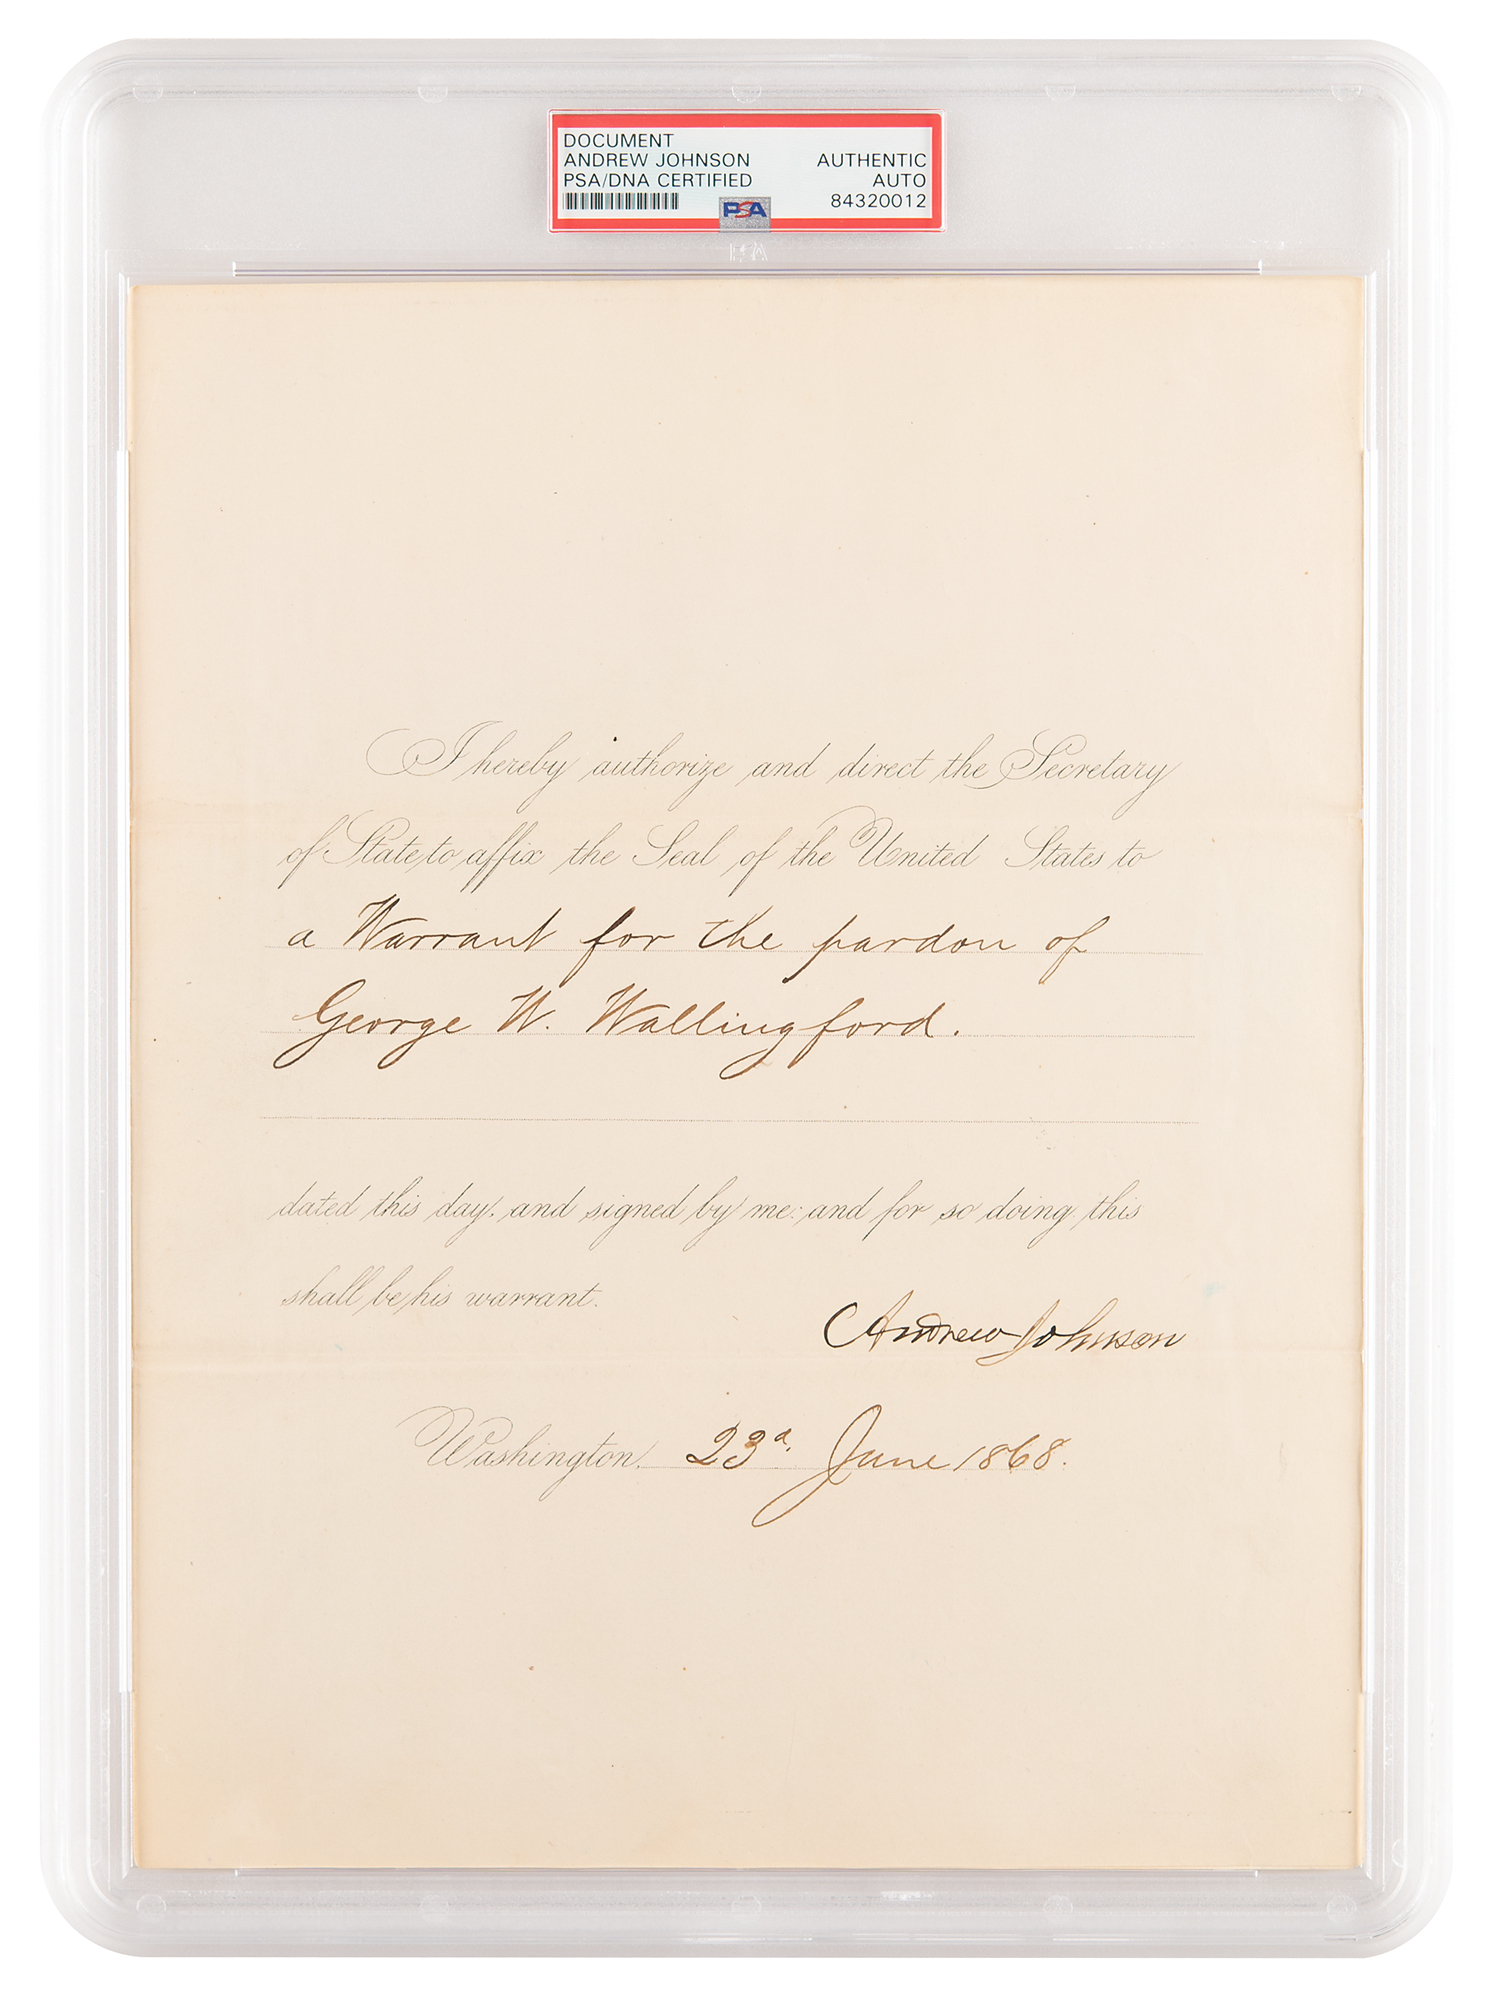 DOCUMENT
ANDREW JOHNSON AUTHENTIC
PSA/DNA CERTIFIED AUTO
84320012
PSA
PSA
I hereby authorize and direct the Secretary
of State to affix the Seal of the United States to
a Warrant for the pardon of
George W. Wallingford.
dated this day, and signed by me: and for so doing this
shall be his warrant.
Andrew Johnson
Washington, 23d. June 1868.